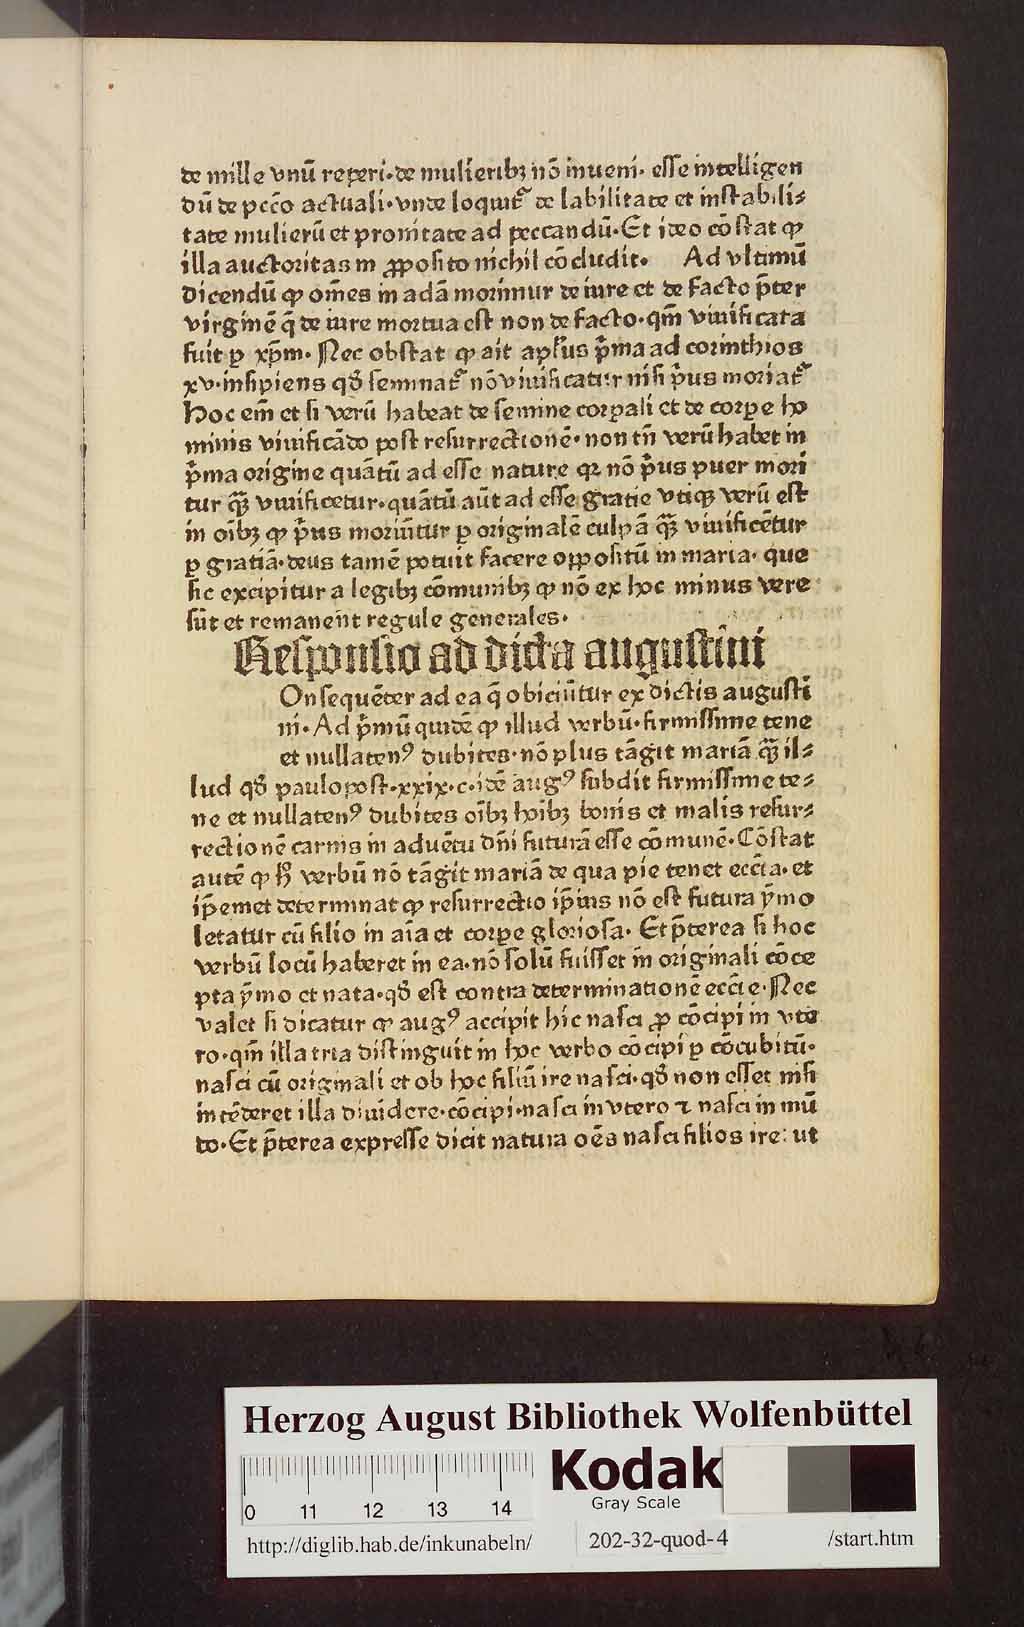 de mille vnū reperi·de mulieribꝫ nō inueni· esse intelligen
dū de pccō actuali·vnde loquit᷑ de labilitate et instabili⸗
tate mulierū et pronitate ad peccandū·Et ideo cōstat ꝙ
illa auctoritas in ꝓposito nichil cōcludit· Ad vltimū
dicendū ꝙ om̄es in adā morimur de iure et de facto p̄ter
virginē q̄ de iure mortua est non de facto·qm̄ viuificata
fuit ꝑ xp̄m· Nec obstat ꝙ ait apl̄us p̄ma ad corinthios
xv·insipiens qđ seminat᷑ nō viuificatur nisi p̄us moriat᷑
Hoc em̄ et si verū habeat de semine corpali et de corpe ho
minis viuificādo post resurrectionē· non tn̄ verū habet in
p̄ma origine quātū ad esse nature qꝛ nō p̄us puer mori
tur qꝫ̄ viuificetur·quātū aūt ad esse gratie vtiqꝫ verū est
in oībꝫ ꝙ p̄us moriūtur ꝑ originalē culpā qꝫ̄ viuificētur
ꝑ gratiā·deus tamē potuit facere oppositū in maria· que
sic excipitur a legibꝫ cōmunibꝫ ꝙ nō ex hoc minus vere
sūt et remanent regule generales·
Responsio ad dicta augustini
Onsequēter ad ea q̄ obiciūtur ex dictis augusti
ni·Ad p̄mū quidē ꝙ illud verbū·firmissime tene
et nullatenꝰ dubites·nō plus tāgit mariā qꝫ̄ il⸗
lud qđ paulopost·xxix·c·idē augꝰ subdit firmissime te⸗
ne et nullatenꝰ dubites oībꝫ hoībꝫ bonis et malis resur⸗
rectionē carnis in aduētu dn̄i futurā esse cōmunē·Cōstat
autē ꝙ h̄ verbū nō tāgit mariā de qua pie tenet ecc̄ia·et
ip̄emet determinat ꝙ resurrectio ip̄ius nō est futura ẏmo
letatur cū filio in aīa et corpe gloriosa· Et p̄terea si hoc
verbū locū haberet in ea·nō solū fuisset in originali cōce
pta ẏmo et nata·qđ est contra determinationē ecc̄ie·Nec
valet si dicatur ꝙ augꝰ accipit hic nasci ꝓ cōcipi in vte
ro·qm̄ illa tria distinguit in hoc verbo cōcipi ꝑ cōcubitū·
nasci cū originali et ob hoc filiū ire nasci·qđ non esset nisi
intēderet illa diuidere·cōcipi·nasci in vtero ⁊ nasci in mū
do·Et p̄terea expresse dicit natura oēs nasci filios ire: ut
Herzog August Bibliothek Wolfenbüttel
Kodak
Gray Scale
0 11 12 13 14
http://diglib.hab.de/inkunabeln/ 202-32-quod-4 /start.htm